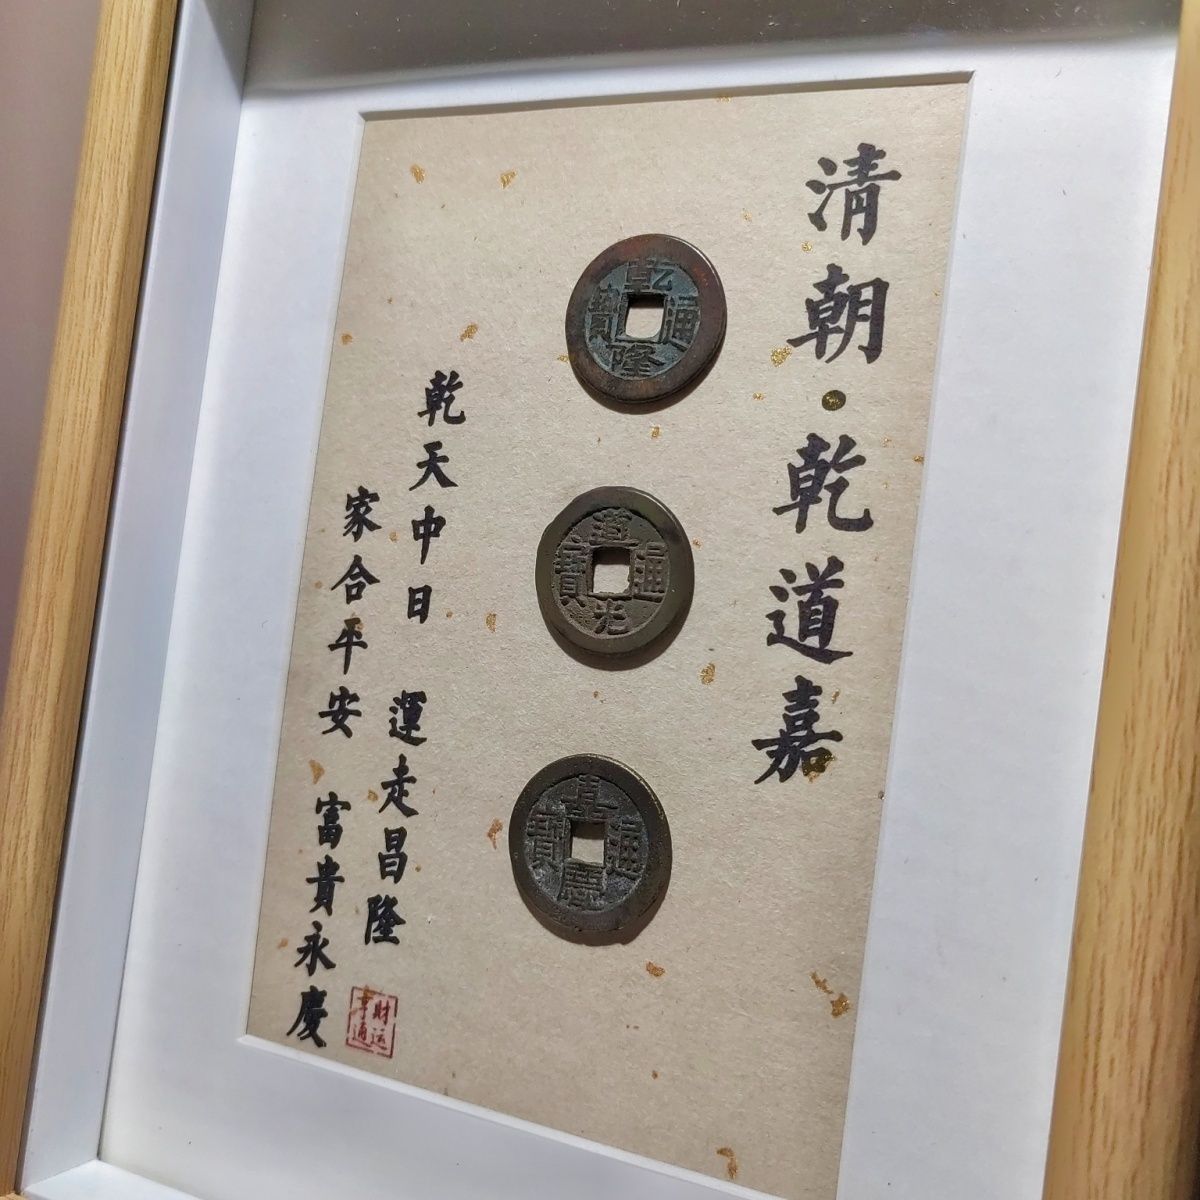 清朝·乾道嘉
乾隆通寶
道光通寶
嘉慶通寶
乾天中日 運走昌隆
家合平安 富貴永慶
財运亨通